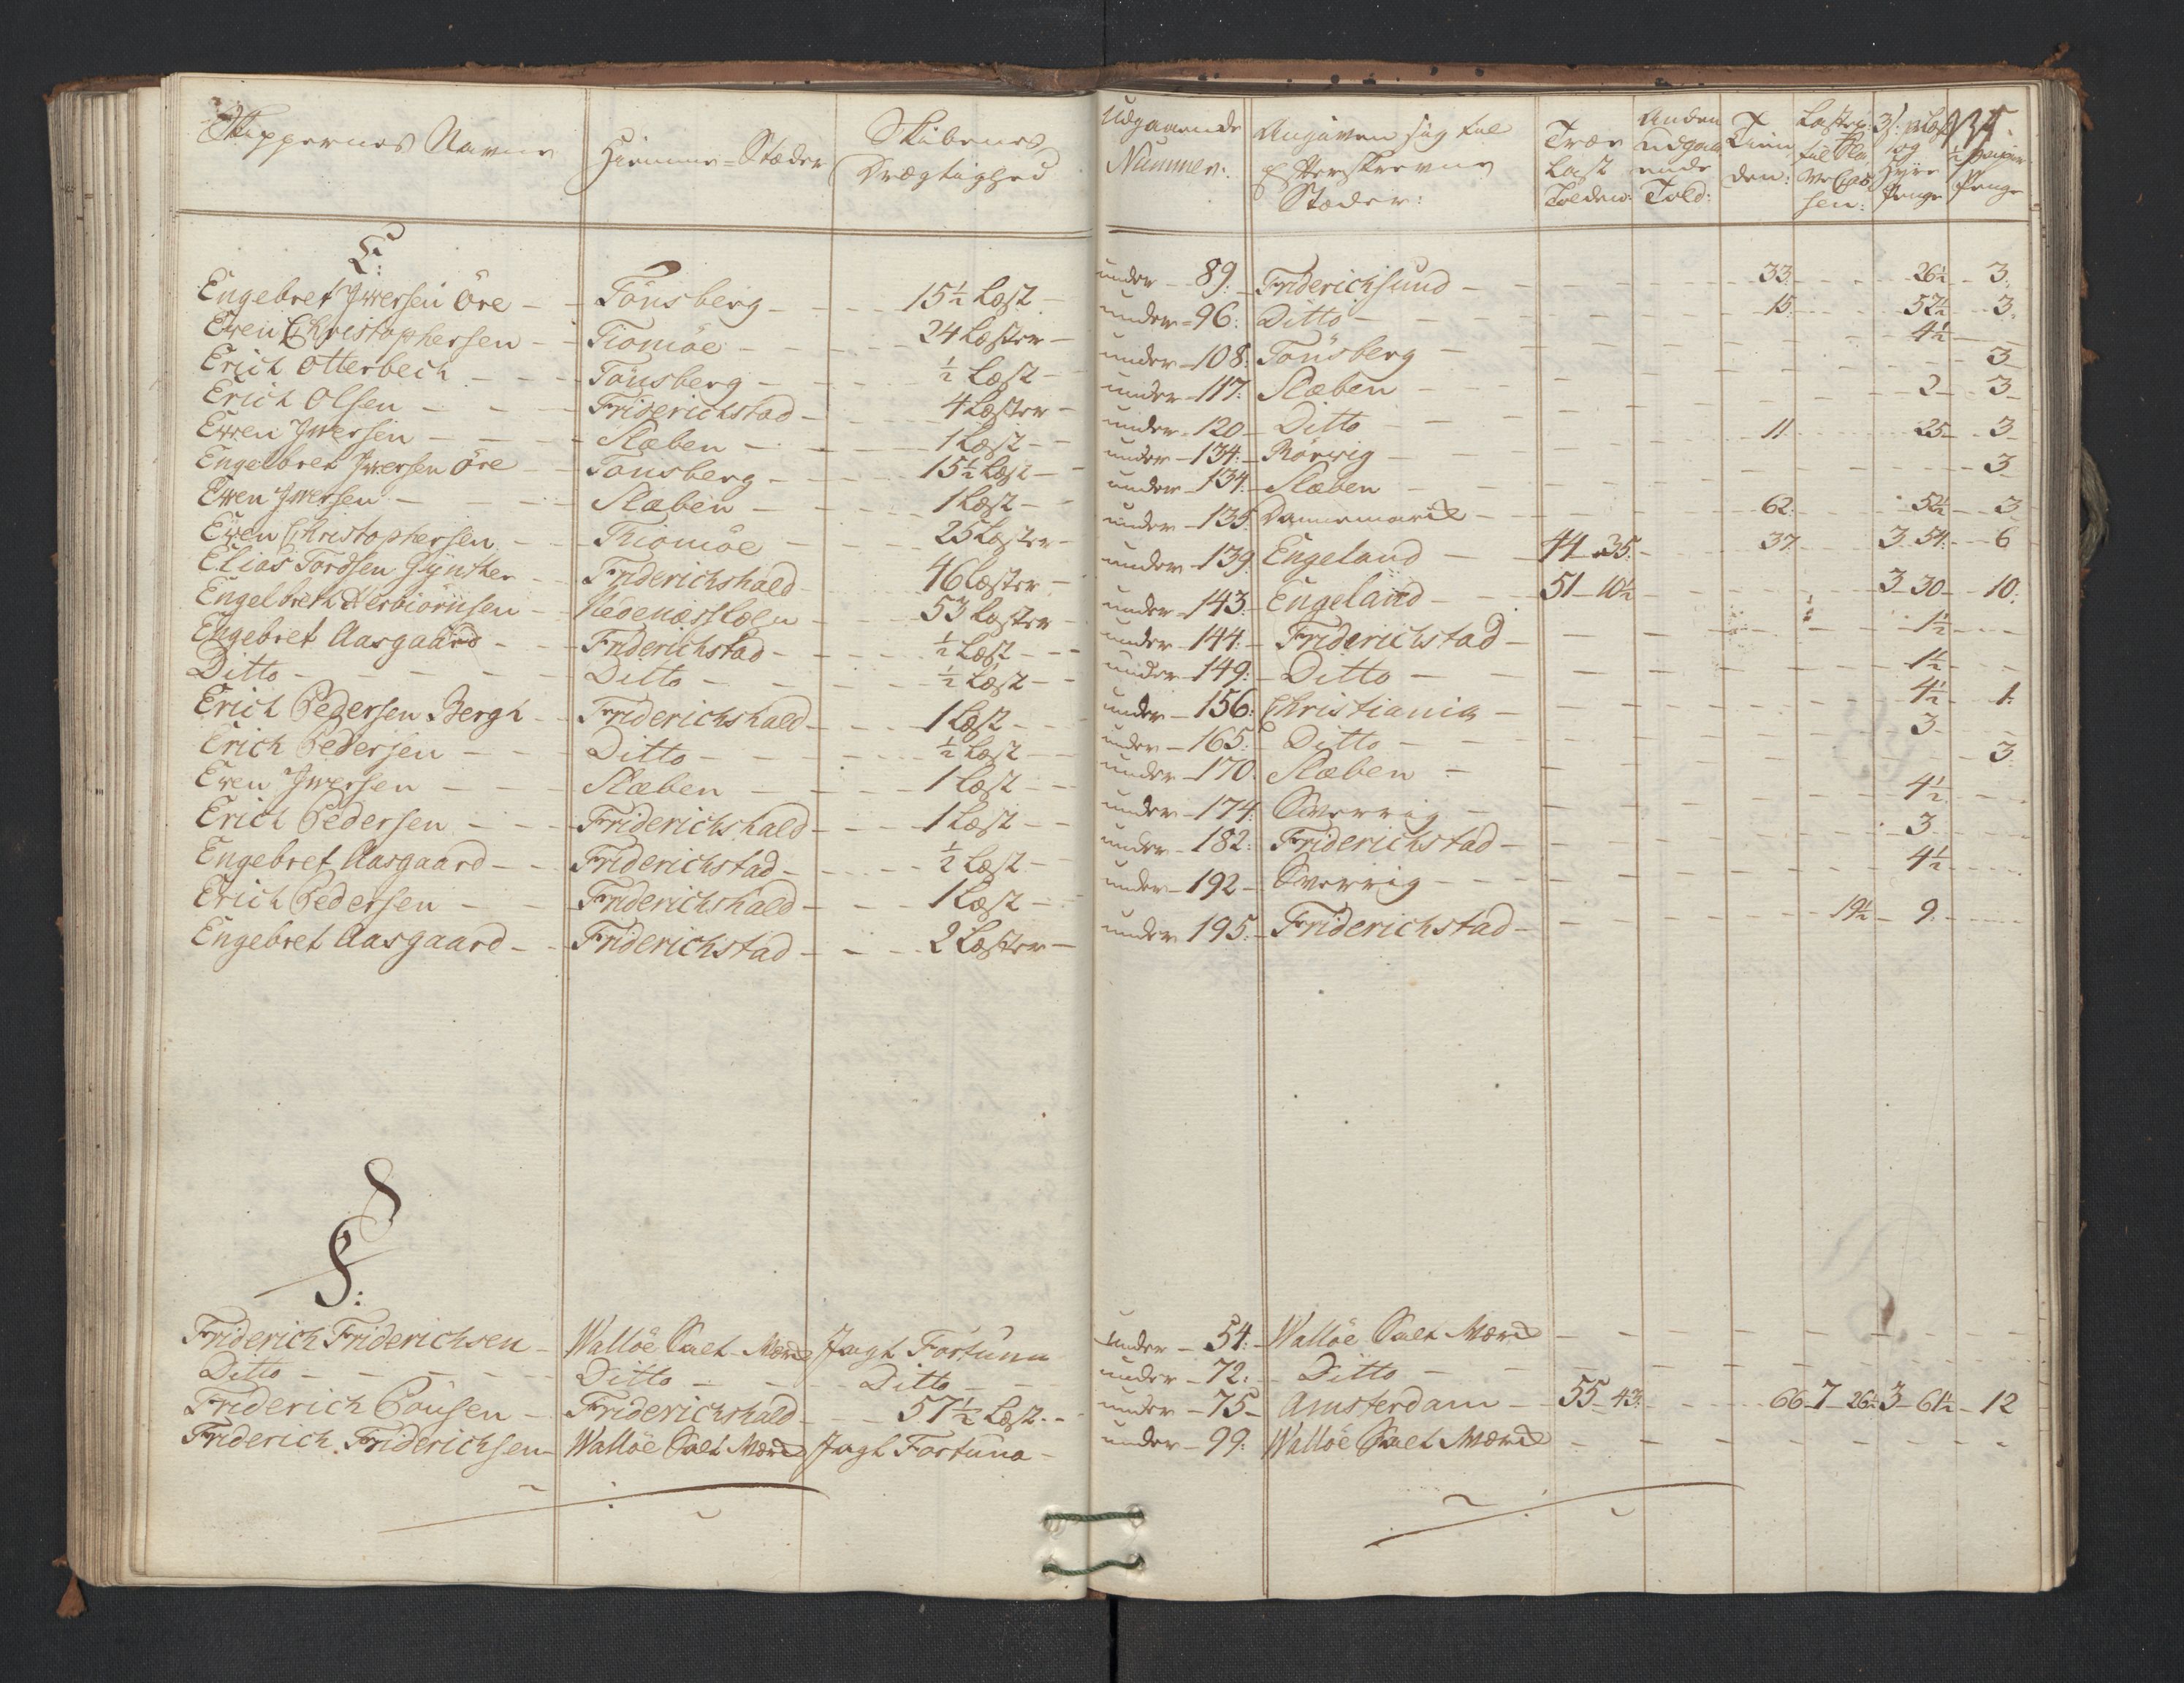 Skippernes Navne | Hiemme-Stæder | Skibenes Drægtighed | Udgaaende Nummer: | Angiven sig til efterskrevne Stæder: | Træe Last Tolden: | Anden udgaaende Told: | Tienden: | 35.
E:
Engebret Iwersen Öre – Tönsberg – 15½ Læst – under – 89: – Friderichsund – 33. – 26½ – 3.
Even Christophersen – Tiomöe – 24 Læster – under – 96: Ditto – 15. – 52½ – 3.
Erich Otterbech – Tönsberg – ½ Læst – under – 108: Tönsberg – 4½
Erich Olsen – Friderichstad – 4 Læster – under – 117: Slæben – 3
Even Iwersen – Slæben – 1 Læst – under – 120 – Ditto – 2 – 3
Engelbret Iwersen Öre – Tönsberg – 15½ Læst – under – 134: – Rörwig – 11. – 25 – 3
Even Iwersen – Slæben – 1 Læst – under – 134: – Slæben – 3
Even Christophersen – Thiomöe – 25 Læster – under – 135 Dannemarck – 62. – 52½ – 3
Elias Tordsen Gÿnther – Friderichshald – 46 Læster – under – 139. Engeland – 44 – 35. – 37. – 3 54. – 6
Engelbreth Herbiörnsen – Nedenæss Læhn – 53 Læster – under – 143: – Engeland – 51 – 10½ – 3 – 30 – 10:
Engebret Aasgaard – Friderichstad – ½ Læst – under – 144: – Friderichstad – 1½
Ditto – Ditto – ½ Læst – under – 149: – Ditto – 1½
Erich Pedersen Bergh – Friderichshald – 1 Læst – under – 156: Christiania – 4½ – 1.
Erich Pedersen – Ditto – ½ Læst – under – 165: – Ditto – 3
Even Iwersen – Slæben – 1 Læst – under – 170. Slæben – 3.
Erich Pedersen – Friderichshald – 1 Læst – under – 174: Sverrig – 4½
Engebret Aasgaard – Friderichstad – ½ Læst – under – 182: – Friderichstad – 3
Erich Pedersen – Friderichshald – 1 Læst – under – 192 – Sverrig – 4½
Engebret Aasgaard – Friderichstad – 2 Læster – under 195: – Friderichstad – 19½ – 9.
F:
Friderich Friderichsen – Walloe Salt-Værck Jagt Fortuna under – 54: – Walloe Salt Værck –
Ditto – Ditto – Ditto – under – 72: – Ditto –
Friderich Pousen – Friderichshald – 57½ Læst – under – 75 – Amsterdam – 55 – 43. – 66 – 7 – 26½ – 3 – 61½ – 12
Friderich Friderichsen – Walloe Salt Værck Jagt Fortuna – under – 99: Walloe Salt Værck –